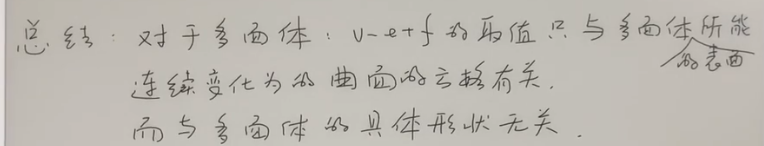 总结：对于多面体：v-e+f的取值只与多面体的表面所能
连续变化为的曲面的亏格有关.
而与多面体的具体形状无关.